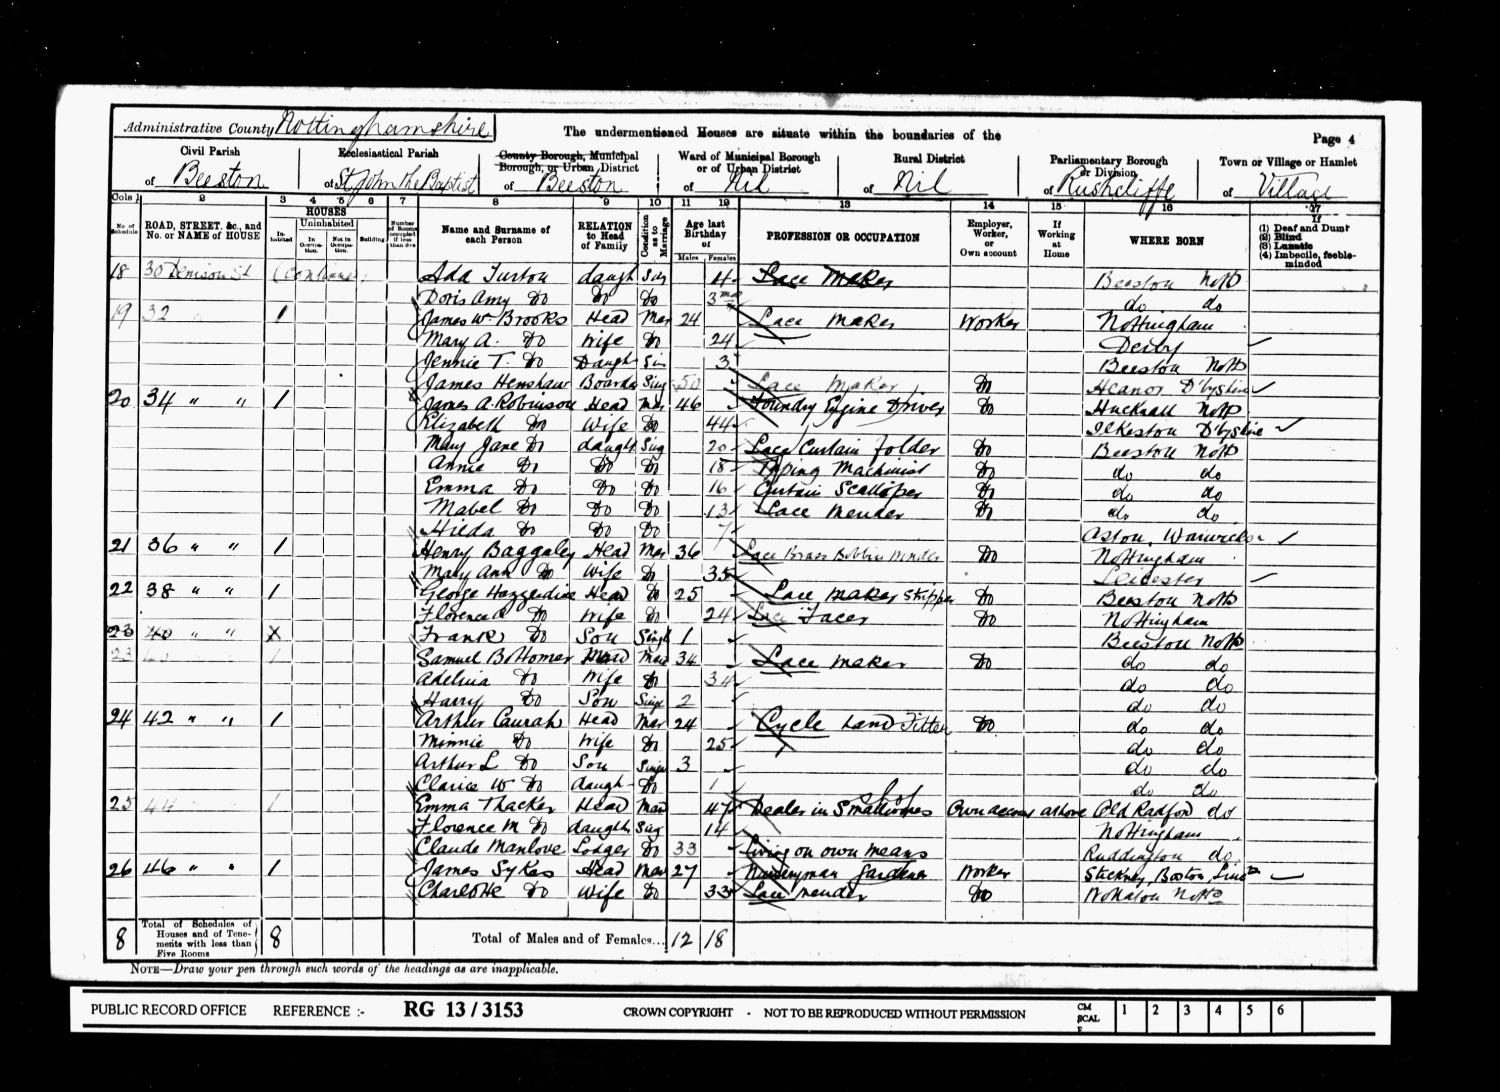 Administrative County Nottinghamshire
The undermentioned Houses are situate within the boundaries of the
Page 4
Civil Parish
of Beeston
Ecclesiastical Parish
of St John the Baptist
County Borough, Municipal Borough, or Urban District
of Beeston
Ward of Municipal Borough or of Urban District
of Nil
Rural District
of Nil
Parliamentary Borough or Division
of Rushcliffe
Town or Village or Hamlet
of Village
Cols 1 2 3 4 5 6 7 8 9 10 11 12 13 14 15 16 17
No. of Schedule
ROAD, STREET, &c., and No. or NAME of HOUSE
HOUSES
Inhabited
Uninhabited
In Occupation.
Not in Occupation.
Building
Number of Rooms occupied if less than five
Name and Surname of each Person
RELATION to Head of Family
Condition as to Marriage
Age last Birthday of
Males Females
PROFESSION OR OCCUPATION
Employer, Worker, or Own account
If Working at Home
WHERE BORN
If
(1) Deaf and Dumb
(2) Blind
(3) Lunatic
(4) Imbecile, feeble-minded
18 30 Denison St (Continued) Ada Turton daugh Sin 4 Lace Maker Beeston Notts
Doris Amy Do Do Do 3 mo do do
19 32 1 James Wm Brooks Head Mar 24 Lace Maker Worker Nottingham
Mary A. Do Wife Do 24 Derby
Jennie T. Do Daugh Sin 3 Beeston Notts
James Henshaw Boarder Sing 50 Lace Maker Do Heanor D'byshire
20 34 " " 1 James A. Robinson Head Mar 46 Foundry Engine Driver Do Hucknall Notts
Elizabeth Do Wife Do 44 Ilkeston D'byshire
Mary Jane Do daught Sing 20 Lace Curtain folder Do Beeston Notts
Annie Do Do Do 18 Taping Machinist Do do do
Emma Do Do Do 16 Curtain Scalloper Do do do
Mabel Do Do Do 13 Lace Mender Do do do
Hilda Do Do Do 7 Aston, Warwicks
21 36 " " 1 Henry Baggaley Head Mar 36 Lace Brass Bobbin Do Nottingham
Mary Ann Do Wife Do 35 Leicester
22 38 " " 1 George Hazzerdine Head Do 25 Lace Maker Stripper Do Beeston Notts
Florence Do Wife Do 24 Lace Do Nottingham
23 40 " " X Frank Do Son Singl 1 Beeston Notts
23 1 Samuel B Homer Head Mar 34 Lace Maker Do do do
Adelina Do Wife Do 34 do do
Harry Do Son Singl 2 do do
24 42 " " 1 Arthur Head Mar 24 Cycle Hand Fitter Do do do
Minnie Do Wife Do 25 do do
Arthur L Do Son Singl 3 do do
Clarice W Do daugh Do 1 do do
25 44 1 Emma Thacker Head 47 Dealer in Smallwares Own account at home Old Radford do
Florence M Do daughtr Sing 14 Nottingham
Claude Manlove Lodger Do 33 Living on own means Ruddington do
26 46 " " 1 James Sykes Head Mar 27 Nurseryman Gardener Worker Stickney, Boston, Lincs
Charlotte Do Wife Do 33 Lace Mender Do Notts
8 Total of Schedules of Houses and of Tenements with less than Five Rooms 8 Total of Males and of Females... 12 18
NOTE—Draw your pen through such words of the headings as are inapplicable.
PUBLIC RECORD OFFICE REFERENCE :- RG 13 / 3153 CROWN COPYRIGHT - NOT TO BE REPRODUCED WITHOUT PERMISSION CM SCALE 1 2 3 4 5 6